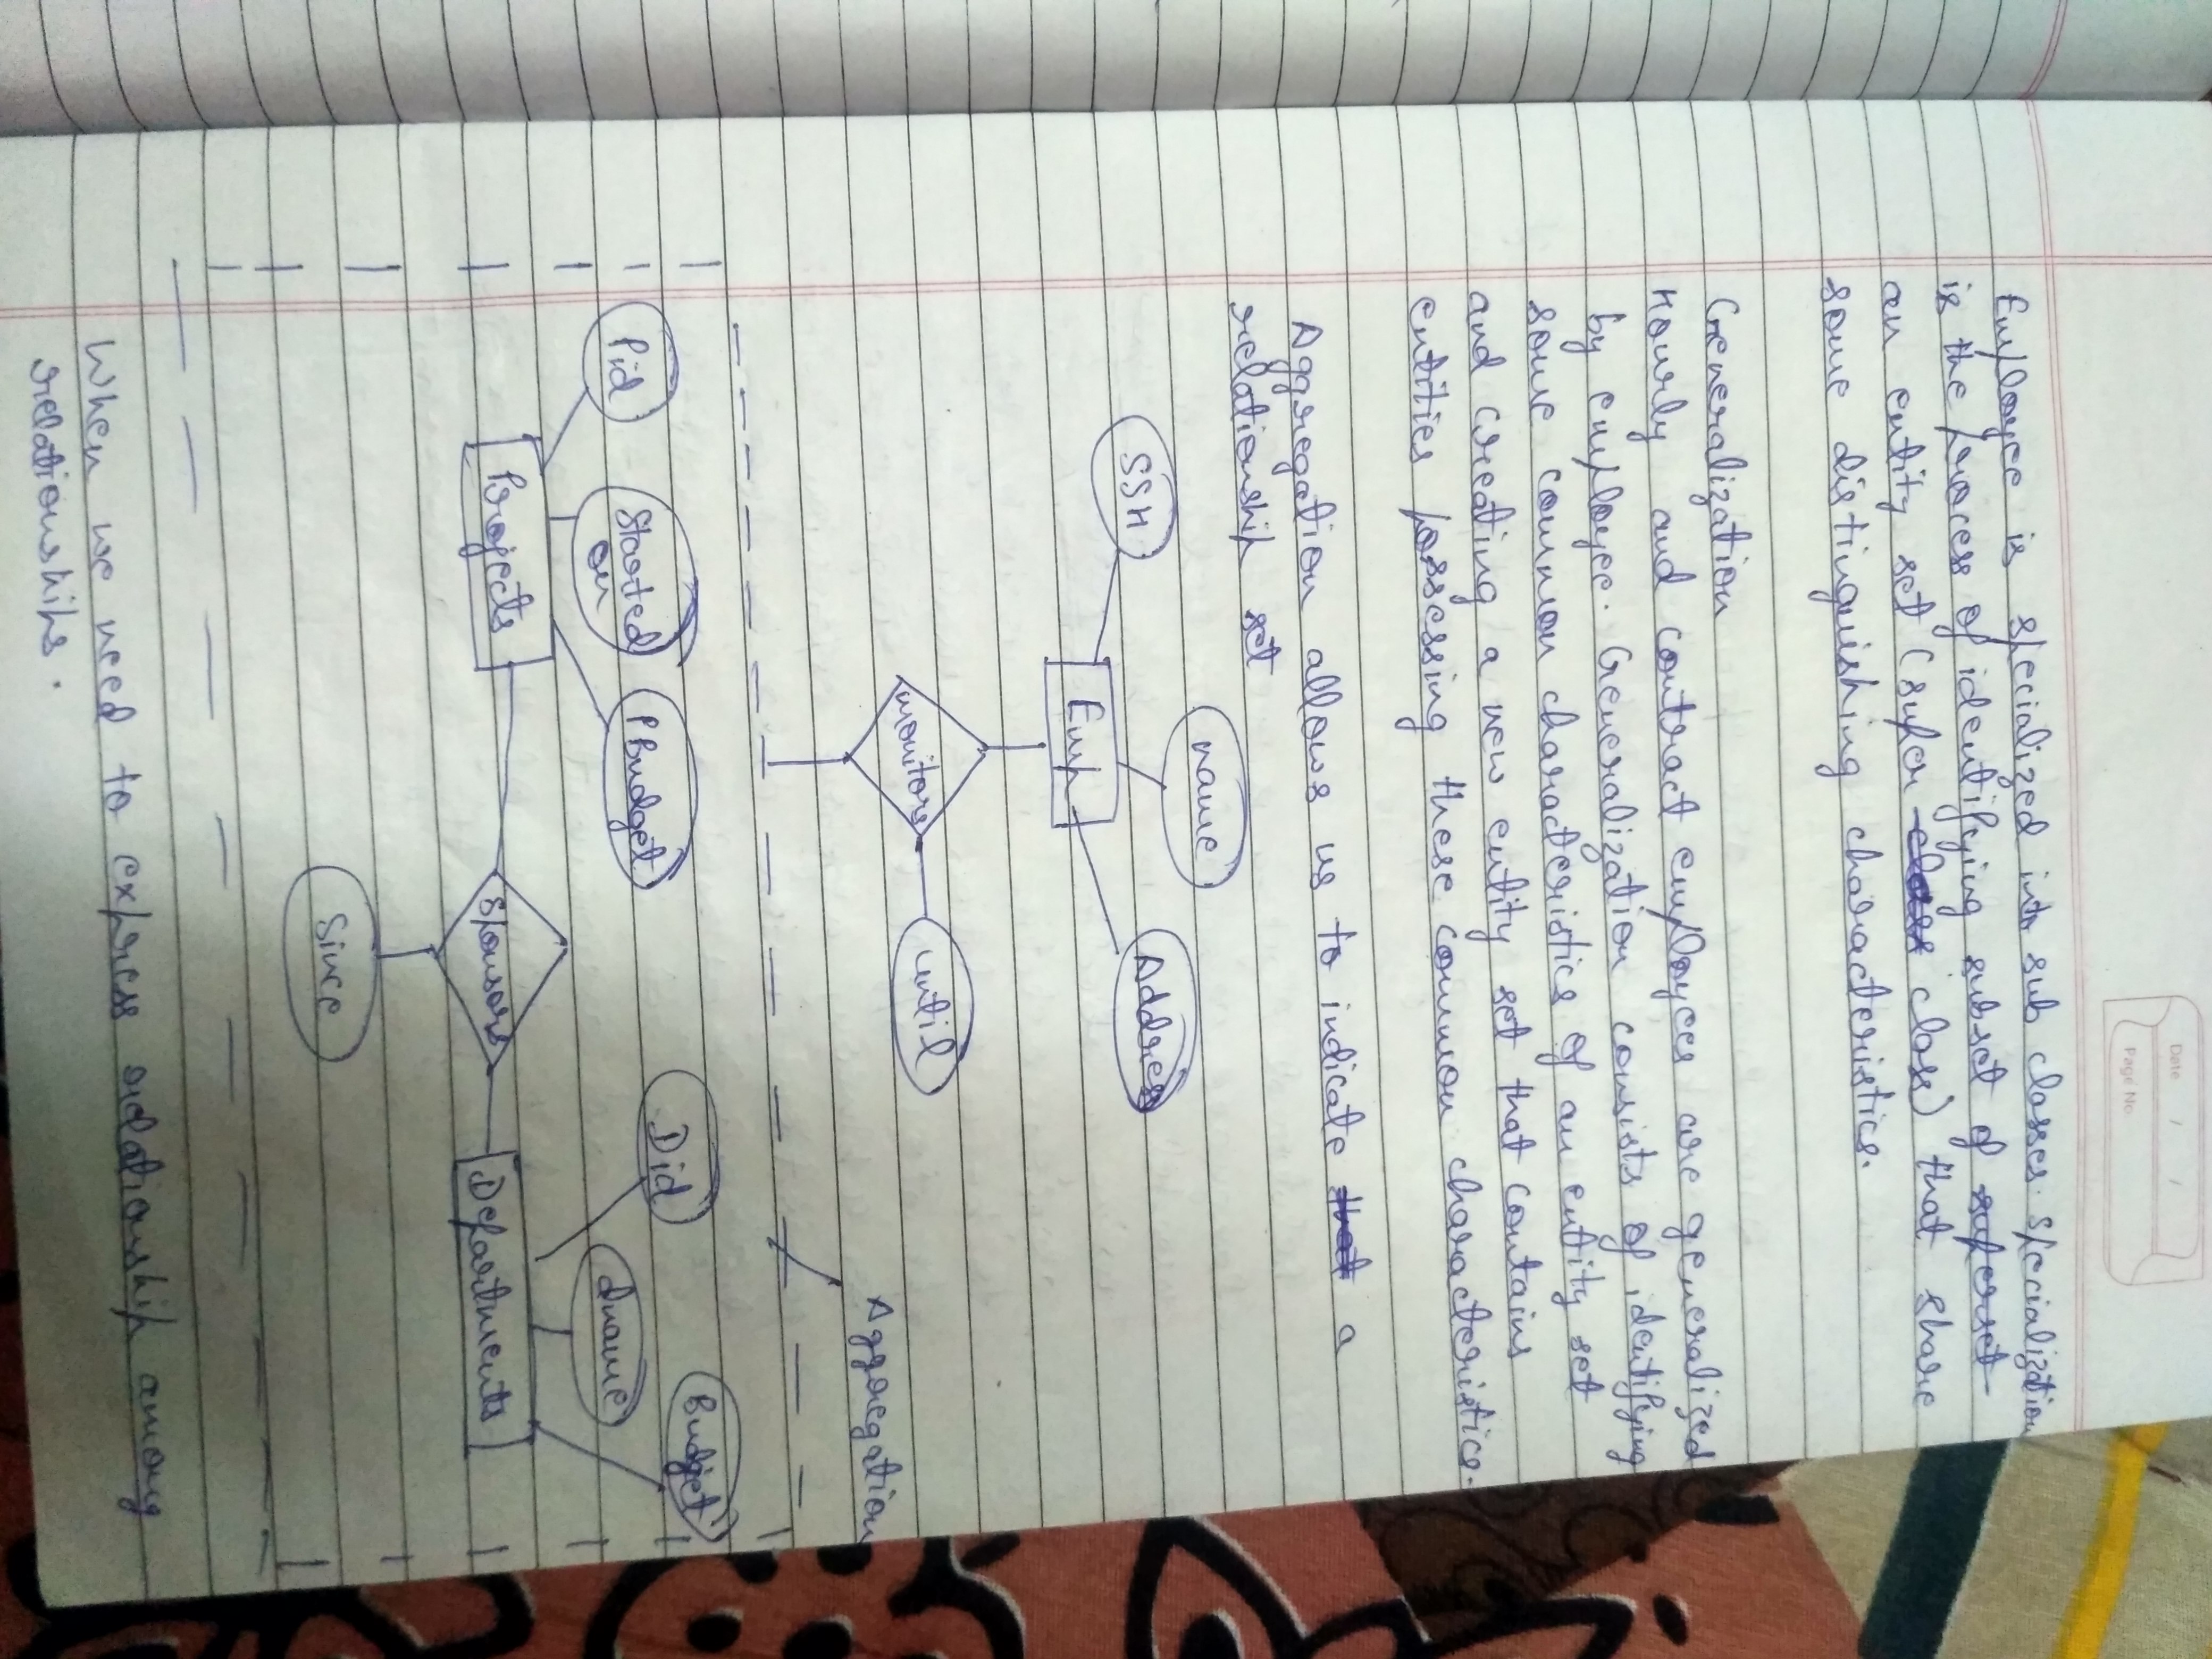 Date / /
Page No
Employee is specialized into sub classes. specialization
is the process of identifying subset of superset
an entity set (super class class) that share
some distinguishing characteristics.
Generalization
Hourly and contract employees are generalized
by employee. Generalization consists of identifying
some common characteristics of an entity set
and creating a new entity set that contains
entities possessing these common characteristics.
Aggregation allows us to indicate that a
relationship set
name
SSH
Address
Emp
monitors
until
Aggregation
Pid
Started
on
PBudget
Did
dname
Budget
Projects
sponsors
Departments
Since
When we need to express relationship among
relationships.